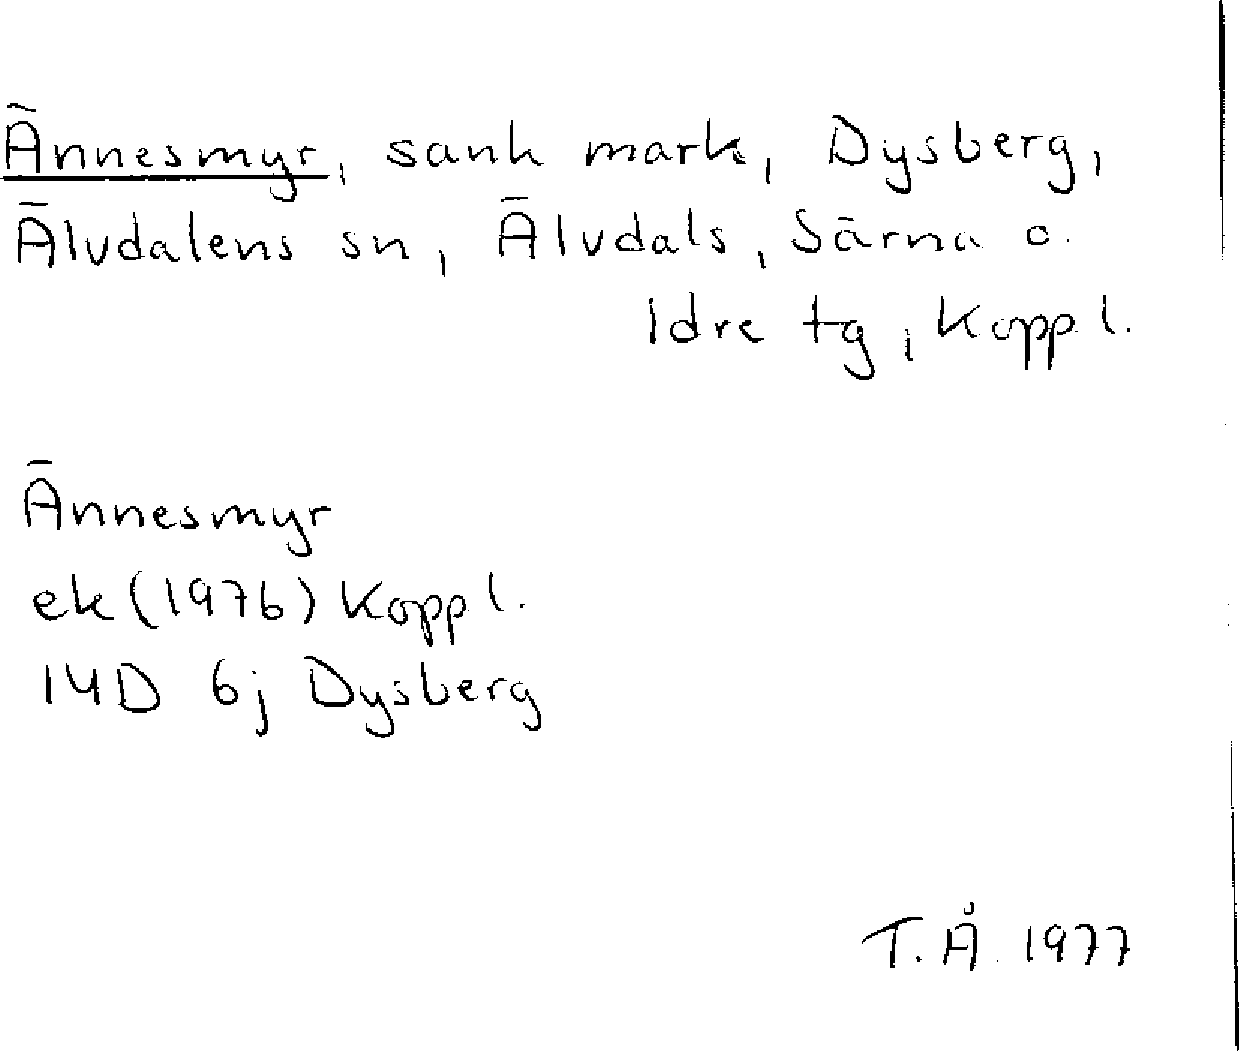 Ännesmyr, sank mark, Dysberg,
Älvdalens sn, Älvdals, Särna o.
Idre tg, Kopp l.
Ännesmyr
ek (1976) Kopp l.
14D 6j Dysberg
T.Å. 1977